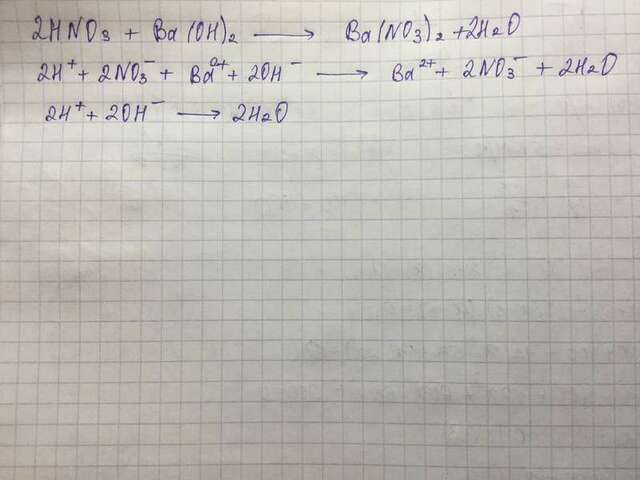 2HNO₃ + Ba(OH)₂ ⟶ Ba(NO₃)₂ + 2H₂O
2H⁺ + 2NO₃⁻ + Ba²⁺ + 2OH⁻ ⟶ Ba²⁺ + 2NO₃⁻ + 2H₂O
2H⁺ + 2OH⁻ ⟶ 2H₂O